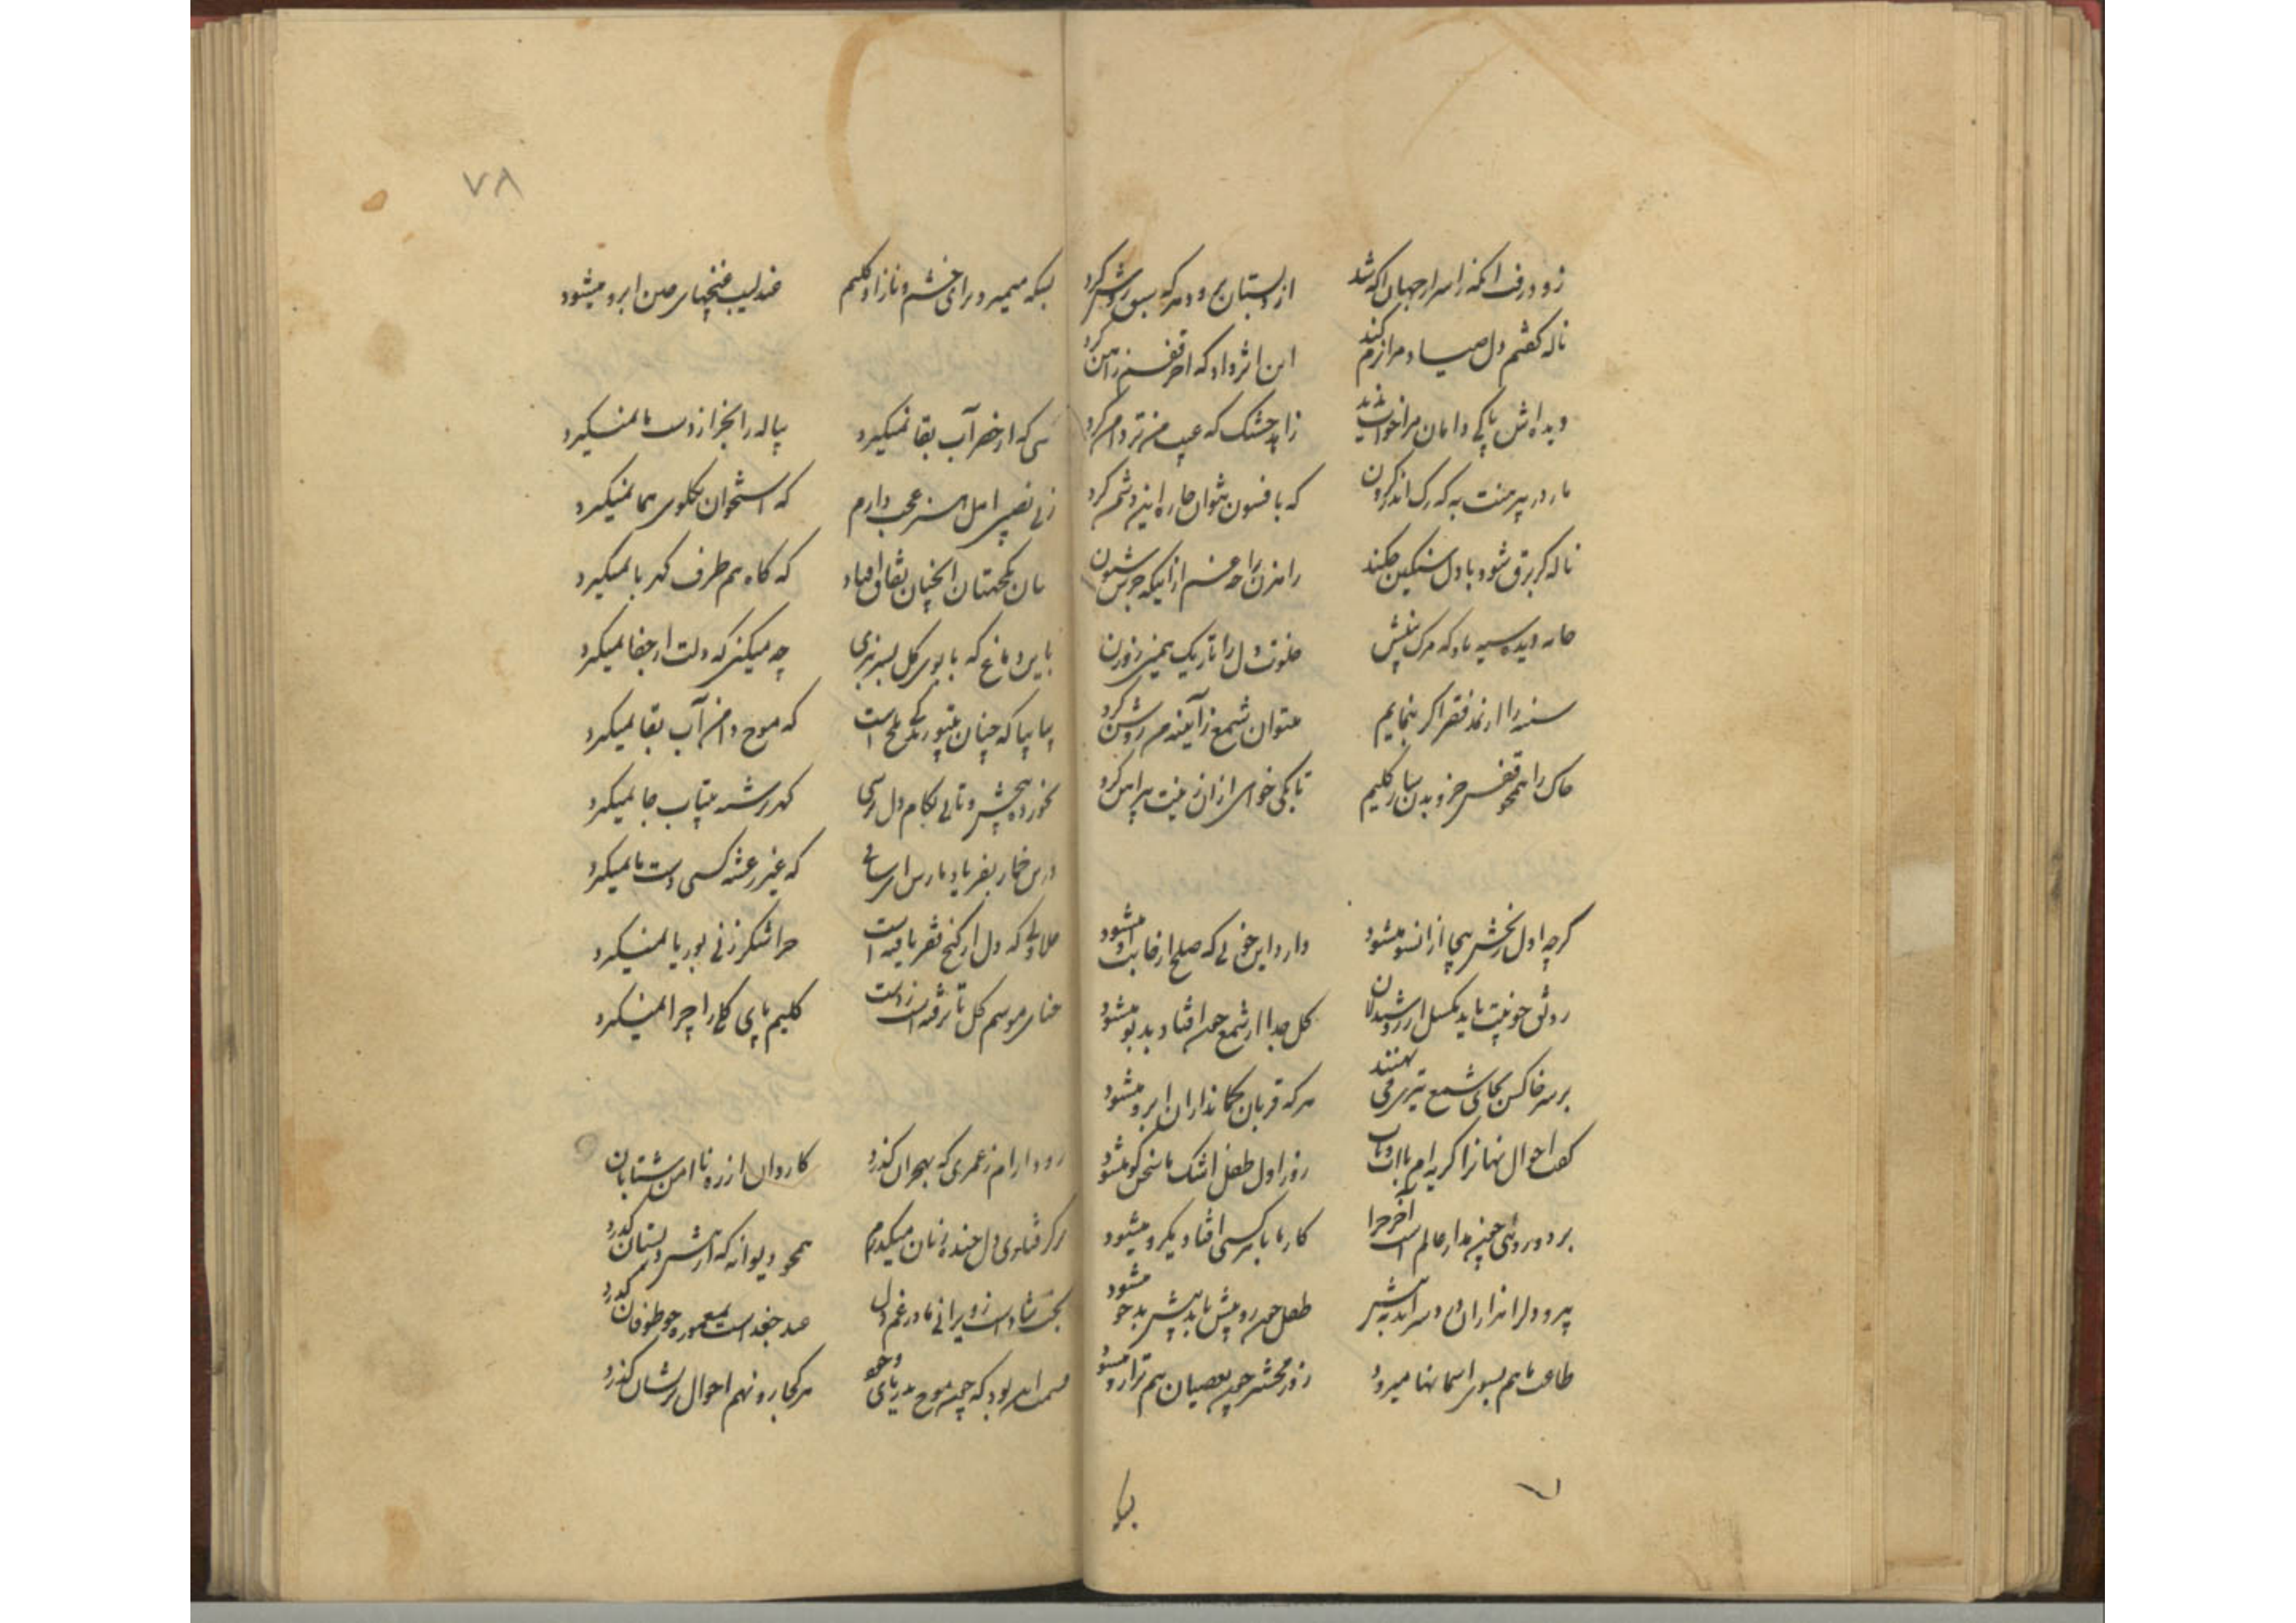 زود رفت آنکه ز اسرار جهان آگه شد از دبستان برود هر که سبق روشن کرد
ناله گفتم دل صیاد مرا نرم کند این اثر داد که آخر قفسم زاهن کرد
دید آلایش پاکی دامان مرا زاهد خشک که عیب من تر دامن کرد
مار در پیرهنت به که رگ اندر گردن که بافسون نتوان چاره این دشمن کرد
ناله گر برق شود با دل سنگین چکند راهزن را چه غم از اینکه جرس شیون کرد
خانه دیده سیه باد که مرگ خلوت دل را تاریک
سینه را از نمد فقر اگر بنمایم میتوان شمع ز آیینه من روشن کرد
خاک را همچو قفس رخنه بدن ساز کلیم تا بکی خواهی از آن زینت پیراهن کرد
گرچه اول رنجش بیجا از آنسو میشود دارد این خوبی که صلح از جانب او میشود
رونق خوبیت باید مگسل از روشندلان گل جدا از شمع چون افتاد بدبو میشود
بر سر خاکش بجای شمع تیری می نهند هر که قربان کمانداران ابرو میشود
گفت احوال نهان را گریه ام با آب و تاب روز اول طفل اشک ما سخنگو میشود
بر دورویی چون مدار عالم است آخر چرا کار ما با هر کسی افتاد یکرو میشود
پیرو دل را هزاران درد سر آید به پیش طفل چون رو پیش باید پیش بدخو میشود
طاعت ما هم بسوی آسمانها میرود روز محشر چون عصیان هم ترازو میشود
بیا
بسکه میمیرد برای خشم و ناز او کلیم عندلیب غنچهای چین ابرو میشود
کسی که از خضر آب بقا نمیگیرد پیاله را بجز از دست ما نمیگیرد
ز بی نصیبی اهل هنر عجب دارم که استخوان بگلوی هما نمیگیرد
میان همجنسان آنچنان نفاق افتاد که کاه هم طرف کهربا نمیگیرد
باین دماغ که با بوی گل بسر نبری چه میکنی که دلت از جفا نمیگیرد
بیا بیا که چنان بیتو زندگی تلخ است که موج دامن آب بقا نمیگیرد
نخورده پیچش و تابی بکام دل نرسی گهر رشته بیتاب جا نمیگیرد
درین خمار بفریاد ما رس ای ساقی که غیر رعشه کسی دست ما نمیگیرد
حلاوتی که دل از کنج فقر یافته است چرا شکر ز نی بوریا نمیگیرد
حنای موسم گل تا نرفته است ز دست کلیم پای گلی را چرا نمیگیرد
رود آرام ز عمری که بهجران گذرد کاروان از ره ناامن شتابان گذرد
بر گرفتاری دل خنده زنان میگذرم همچو دیوانه که از پیش دبستان گذرد
بخت شادست ز ویرانی ما در غم دل عید جغد است بمعموره چو طوفان گذرد
قسمت این بود که چون موج بدریای وجود هر کجا رو نهم احوال پریشان گذرد